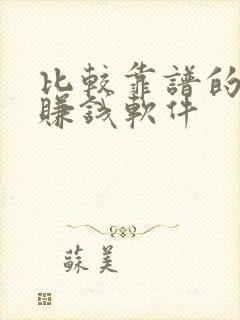 比較靠譜的
賺錢軟件
蘇美